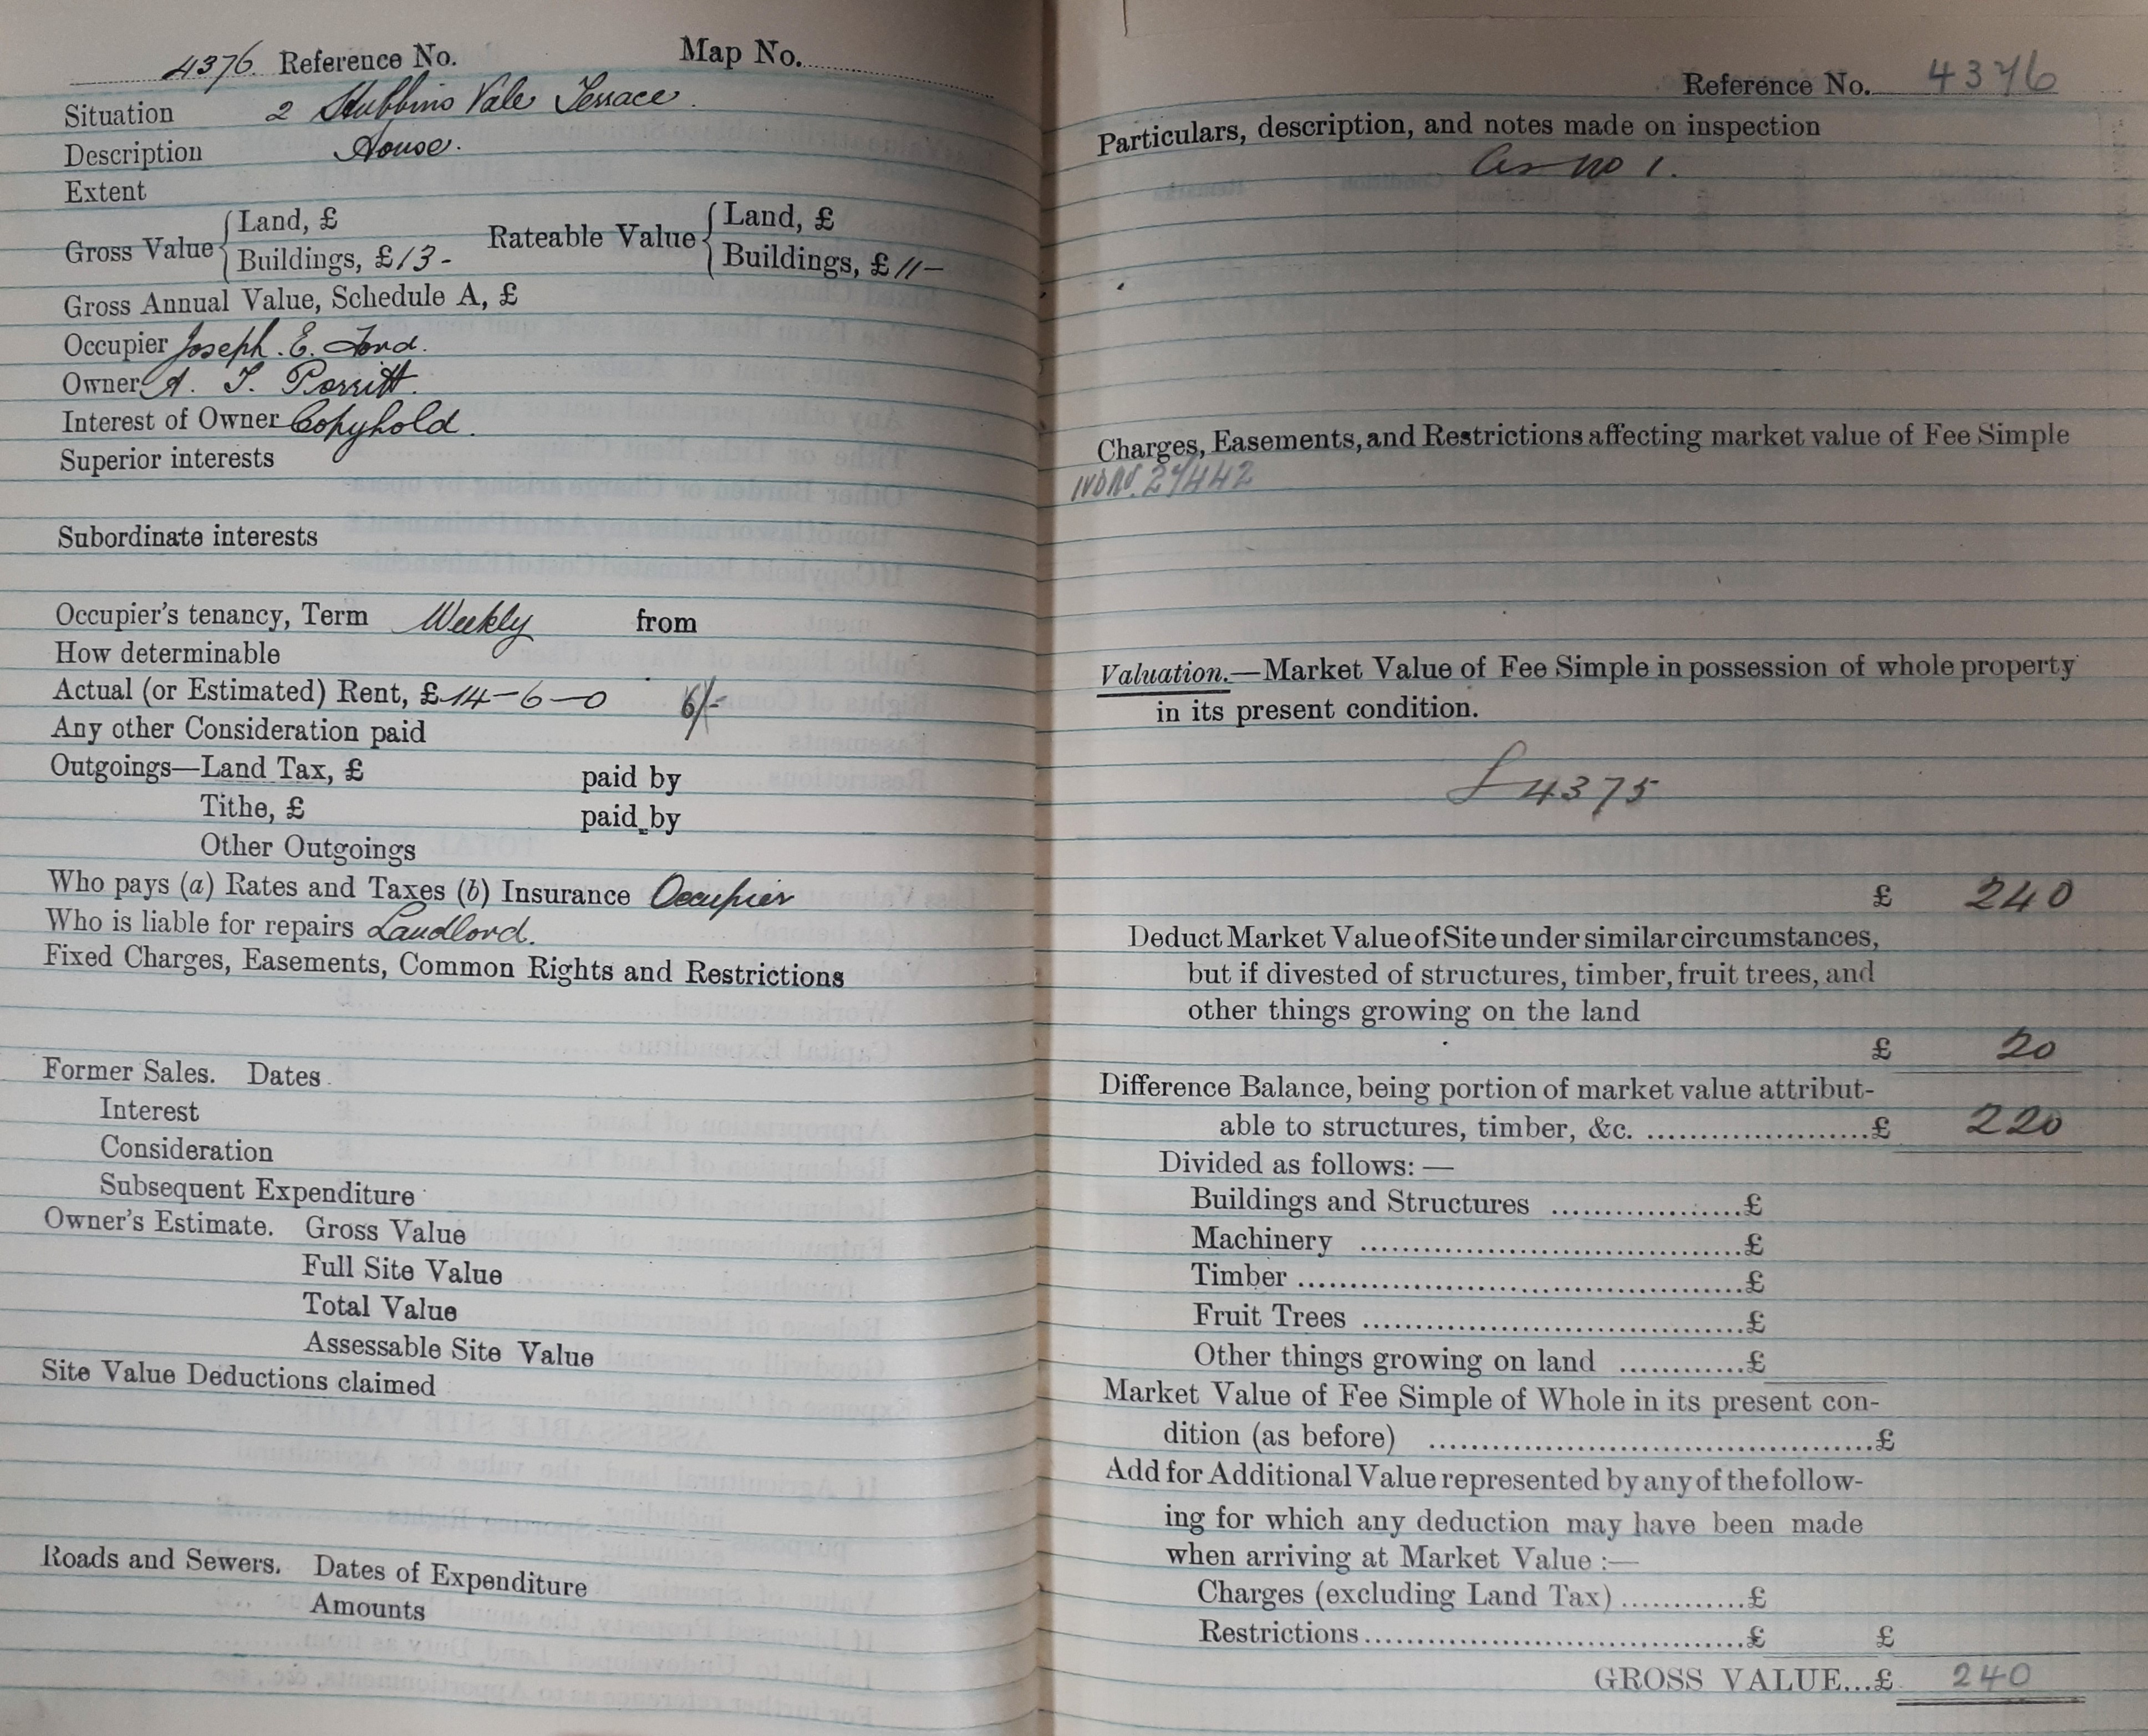 4376. Reference No. Map No.
Situation 2 Stubbins Vale Terrace.
Description House.
Extent
Gross Value { Land, £
Buildings, £13- Rateable Value { Land, £
Buildings, £11-
Gross Annual Value, Schedule A, £
Occupier Joseph. E. Lord.
Owner A. T. Porritt.
Interest of Owner Copyhold.
Superior interests
Subordinate interests
Occupier's tenancy, Term Weekly from
How determinable
Actual (or Estimated) Rent, £14-6-0 6/-
Any other Consideration paid
Outgoings—Land Tax, £ paid by
Tithe, £ paid by
Other Outgoings
Who pays (a) Rates and Taxes (b) Insurance Occupier
Who is liable for repairs Landlord.
Fixed Charges, Easements, Common Rights and Restrictions
Former Sales. Dates
Interest
Consideration
Subsequent Expenditure
Owner's Estimate. Gross Value
Full Site Value
Total Value
Assessable Site Value
Site Value Deductions claimed
Roads and Sewers. Dates of Expenditure
Amounts
Reference No. 4376
Particulars, description, and notes made on inspection
as no 1.
Charges, Easements, and Restrictions affecting market value of Fee Simple
27442
Valuation.—Market Value of Fee Simple in possession of whole property
in its present condition.
£4375
£ 240
Deduct Market Value of Site under similar circumstances,
but if divested of structures, timber, fruit trees, and
other things growing on the land
£ 20
Difference Balance, being portion of market value attribut-
able to structures, timber, &c. ....................£ 220
Divided as follows:—
Buildings and Structures ..................£
Machinery ....................................£
Timber ..........................................£
Fruit Trees ....................................£
Other things growing on land ............£
Market Value of Fee Simple of Whole in its present con-
dition (as before) ..........................................£
Add for Additional Value represented by any of the follow-
ing for which any deduction may have been made
when arriving at Market Value:—
Charges (excluding Land Tax)............£
Restrictions....................................£ £
GROSS VALUE...£ 240